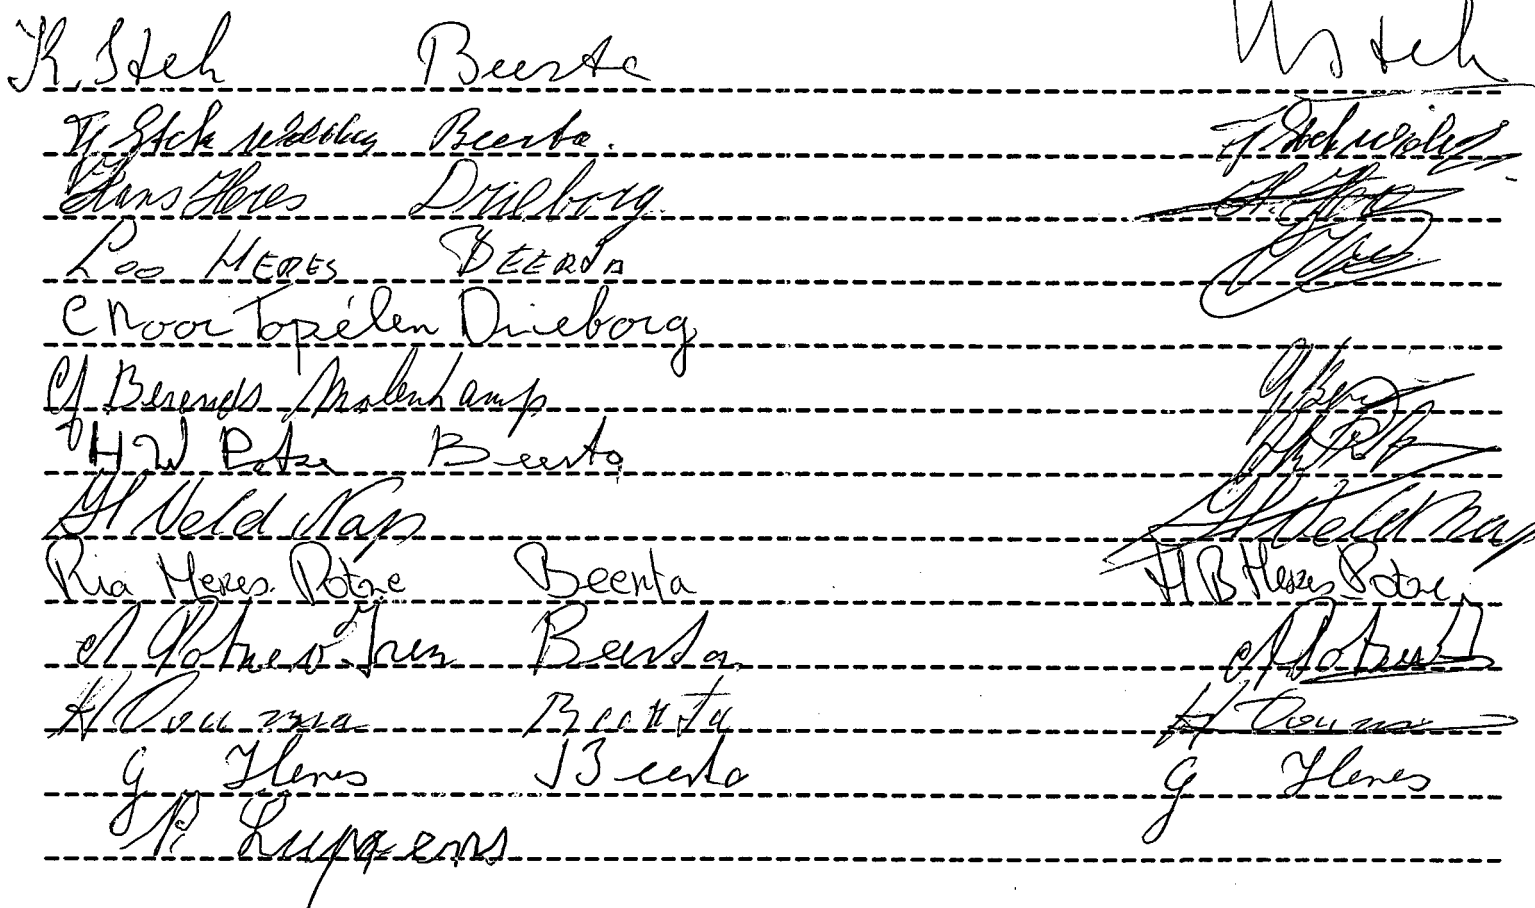 K. Stek Beerta K Stek
Tj Stek Beerta. Tj Stek
Hans Heres Drieborg. H. Heres
Loo HERES BEERTA
C Noor Topélen Drieborg
Berends Molenkamp
H W Potze Beerta
H Veld Nap H Veld Nap
Ria Heres. Potze Beerta H B Heres-Potze.
A Potze v. Iren Beerta A Potze
H Douma Beerta H Douma
G Heres Beerta G Heres
P. Luppens